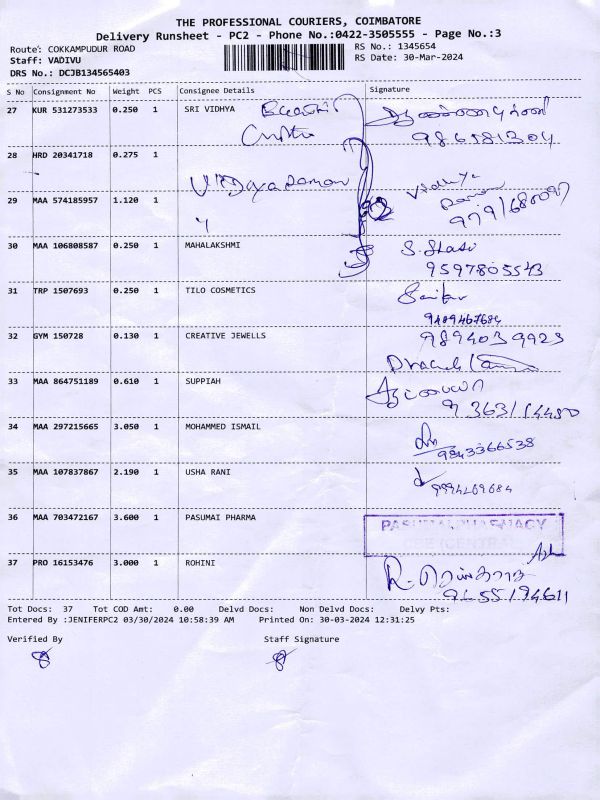 THE PROFESSIONAL COURIERS, COIMBATORE
Delivery Runsheet - PC2 - Phone No.:0422-3505555 - Page No.:3
Route: COKKAMPUDUR ROAD
RS No.: 1345654
Staff: VADIVU
RS Date: 30-Mar-2024
DRS No.: DCJB134565403
S No Consignment No Weight PCS Consignee Details Signature
27 KUR 531273533 0.250 1 SRI VIDHYA
986581304
28 HRD 20341718 0.275 1
Vidhya
29 MAA 574185957 1.120 1
30 MAA 106808587 0.250 1 MAHALAKSHMI S.
9597805543
31 TRP 1507693 0.250 1 TILO COSMETICS
9489467684
32 GYM 150728 0.130 1 CREATIVE JEWELLS 9894039923
33 MAA 864751189 0.610 1 SUPPIAH
34 MAA 297215665 3.050 1 MOHAMMED ISMAIL
9843366538
35 MAA 107837867 2.190 1 USHA RANI
9994269684
36 MAA 703472167 3.600 1 PASUMAI PHARMA PASUMAI PHARMACY
37 PRO 16153476 3.000 1 ROHINI R.
9655194611
Tot Docs: 37 Tot COD Amt: 0.00 Delvd Docs: Non Delvd Docs: Delvy Pts:
Entered By :JENIFERPC2 03/30/2024 10:58:39 AM Printed On: 30-03-2024 12:31:25
Verified By Staff Signature